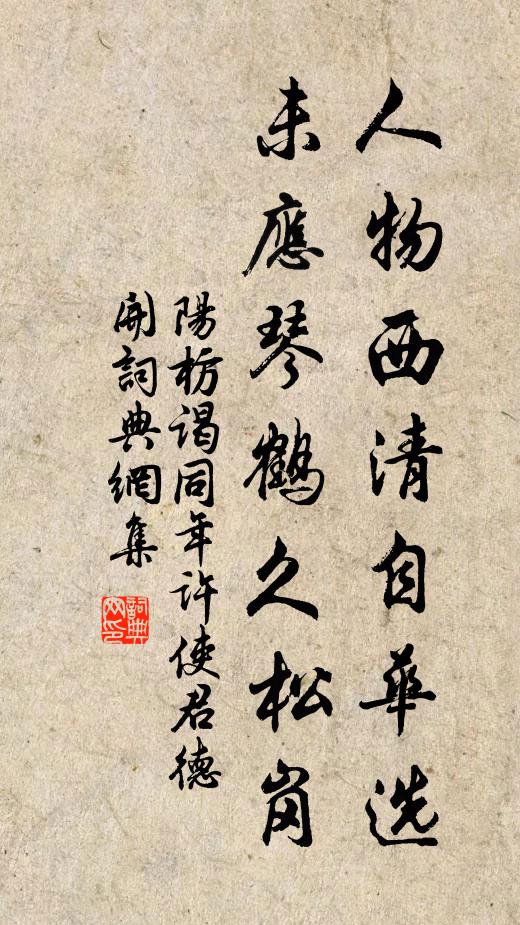 人物西清自華选
未應琴鶴久松崗
陽枋谒同年许使君德
開詞典網集
詞典
网印